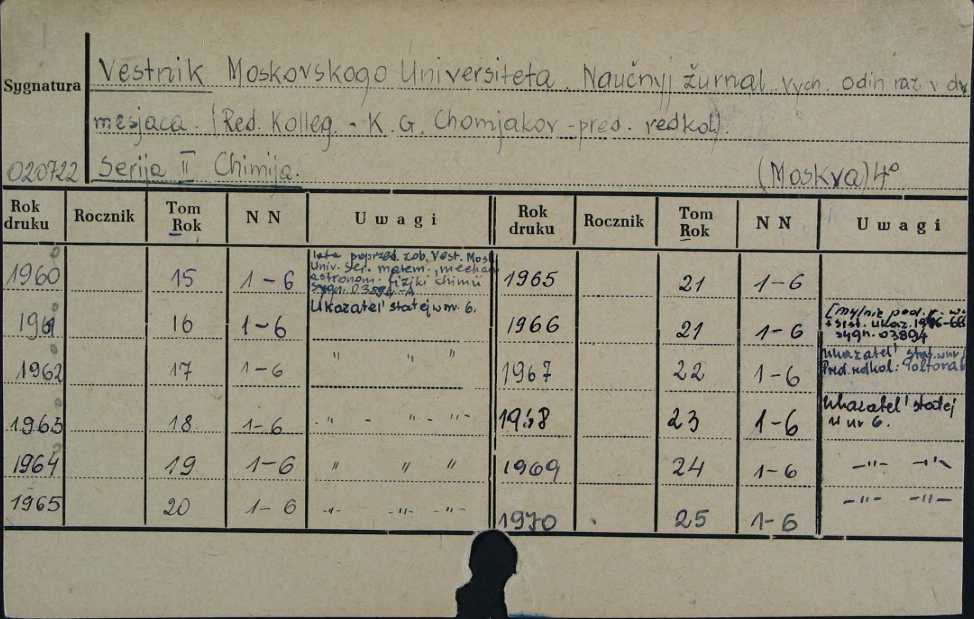 Vestnik Moskovskogo Universiteta. Naučnyj žurnal vych. odin raz v
Sygnatura
mesjaca. (Red. Kolleg. - K. G. Chomjakov - pred. redkol).
020722 Serija II Chimija. (Moskva) 4°
Rok druku Rocznik Tom Rok NN Uwagi Rok druku Rocznik Tom Rok NN Uwagi
1960 15 1-6 lata poprzed. zob. Vest. Mosk
Univ. Ser. matem., mechan
astronom. fiziki chimii
sygn. 03894-A
1965 21 1-6
1961 16 1-6 Ukazatel' statej w nr. 6.
1966 21 1-6 [mylnie pod.
ukaz. 1946-66
sygn. 03894
1962 17 1-6 " "
1967 22 1-6 Ukazatel' stat. w nr
Pred. redkol:
1963 18 1-6 -"- " -"-
1968 23 1-6 Ukazatel' statej
w nr 6.
1964 19 1-6 " " "
1969 24 1-6 -"- -"-
1965 20 1-6 -"- -"- -"-
1970 25 1-6 -"- -"-